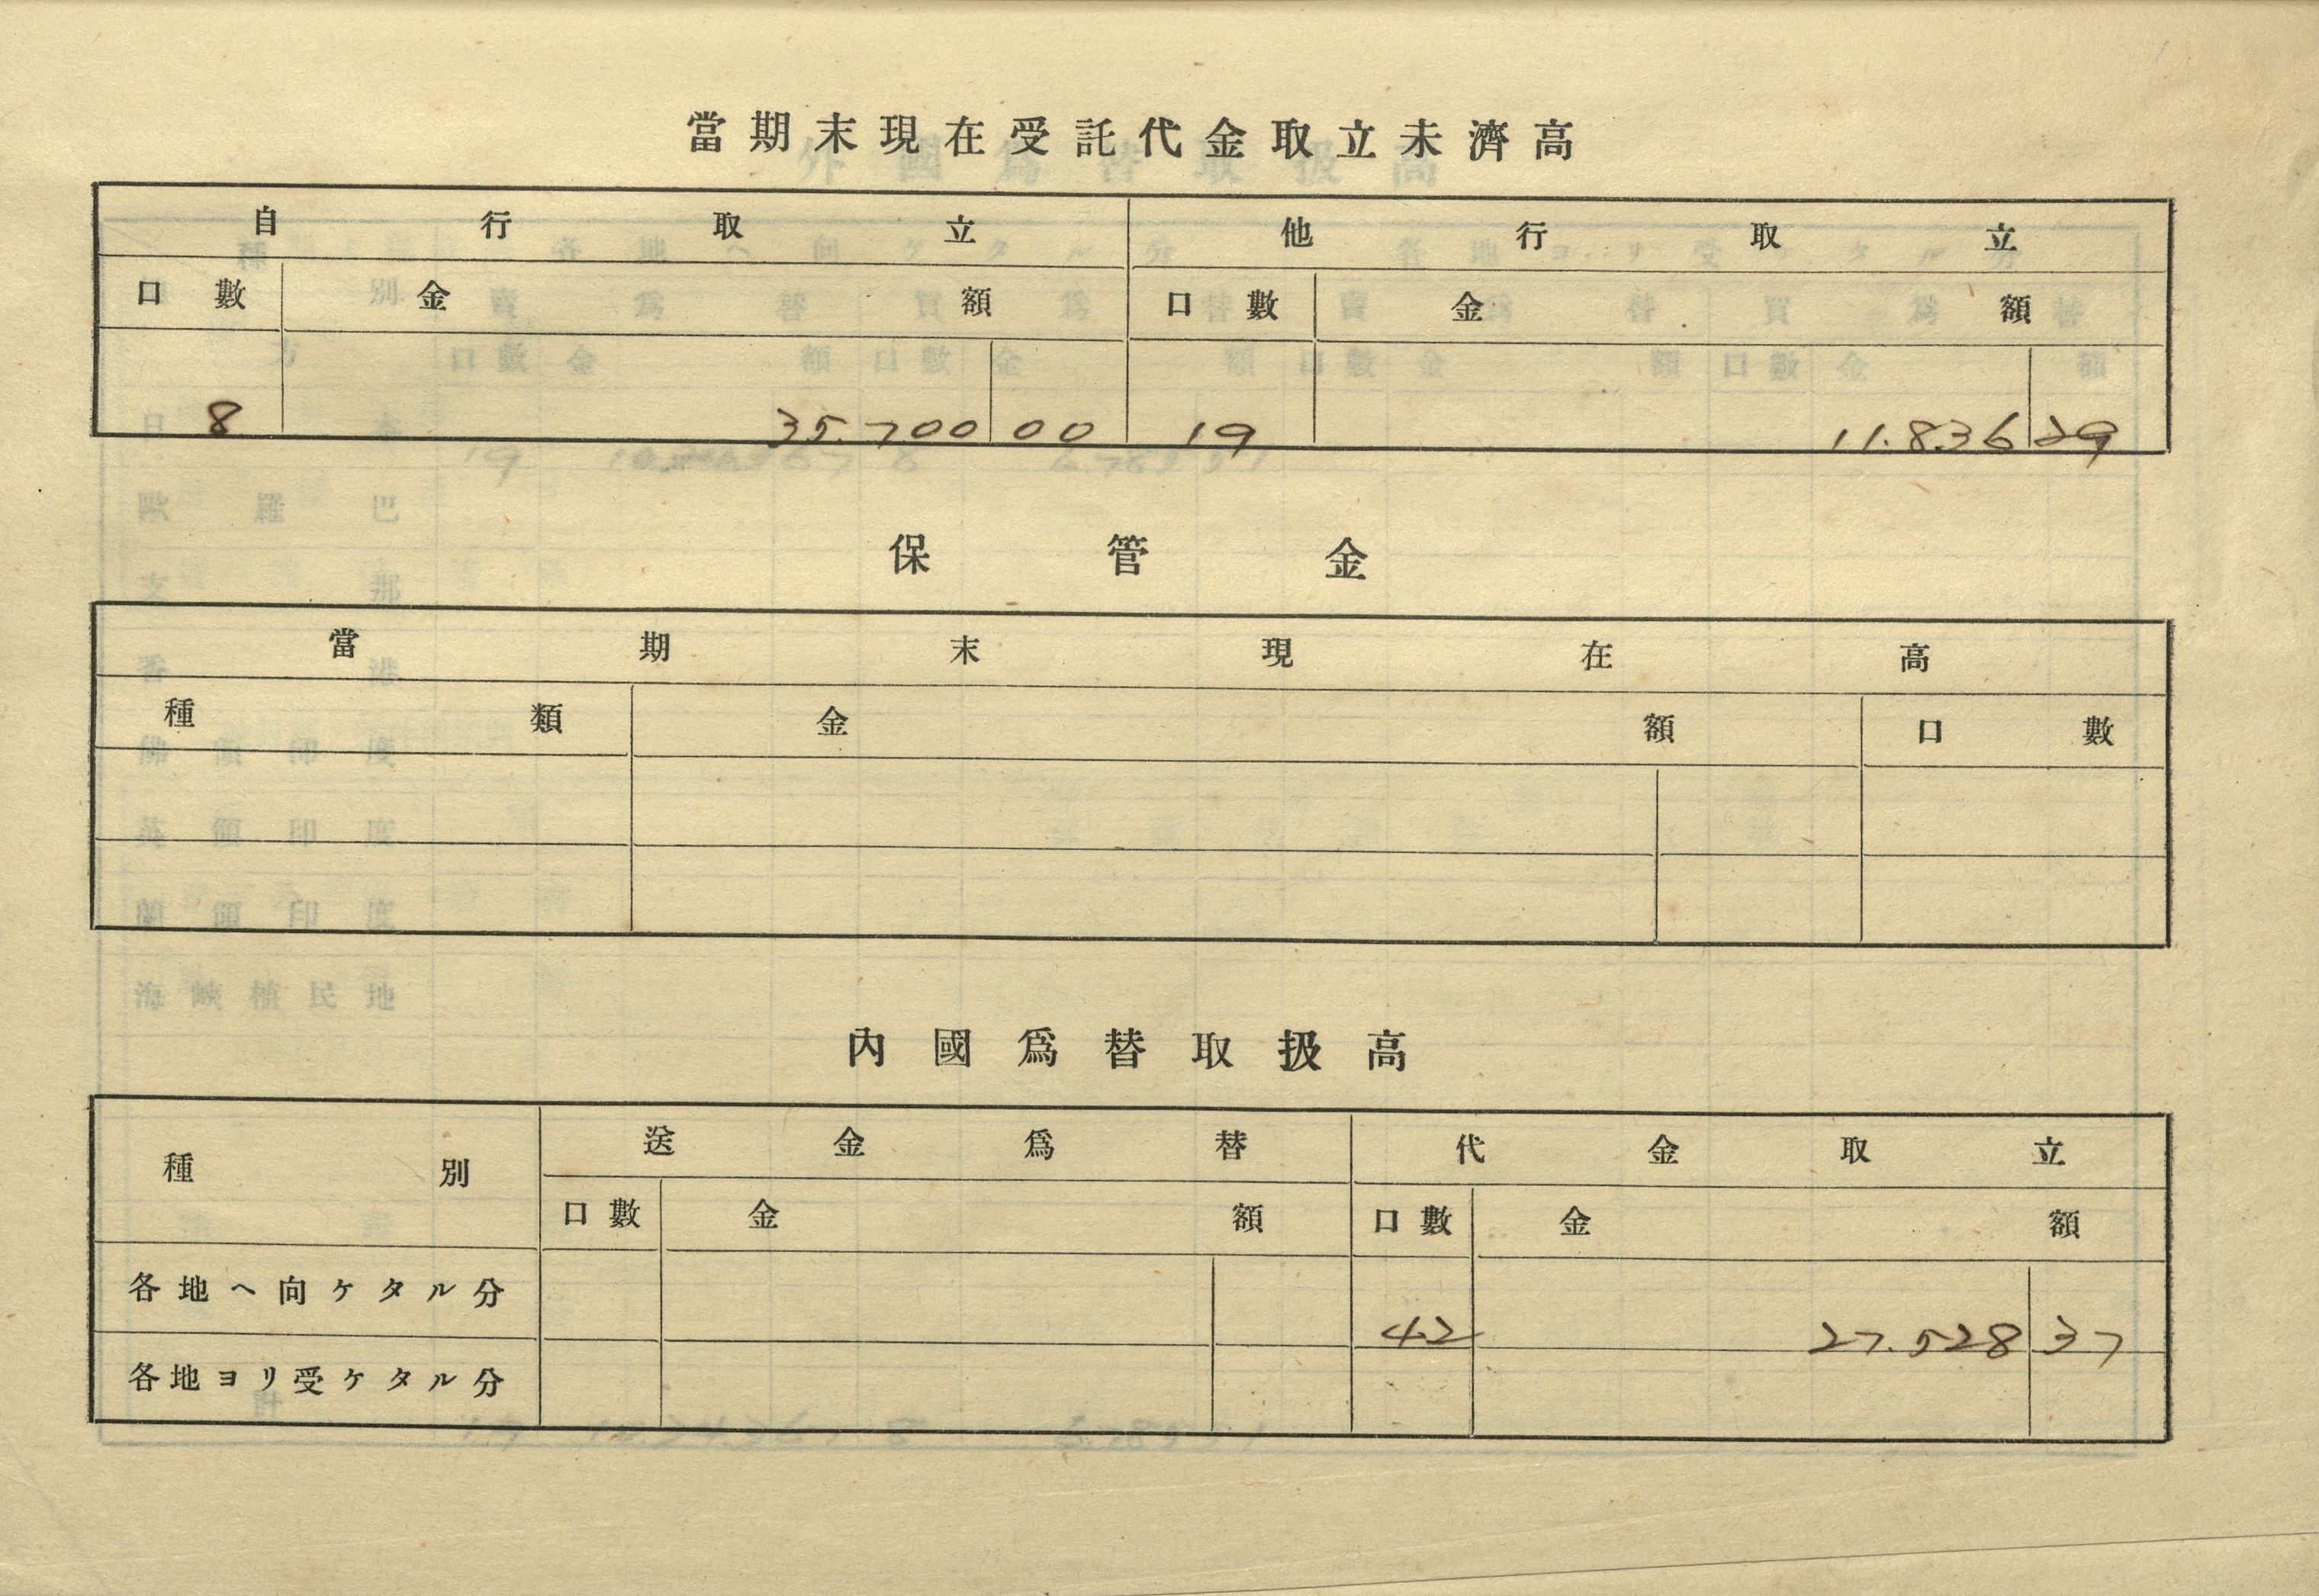 當期末現在受託代金取立未濟高
自行取立 他行取立
口數 金額 口數 金額
8 35.700 00 19 11.836 29
保管金
當期末現在高
種類 金額 口數
內國爲替取扱高
種別 送金爲替 代金取立
口數 金額 口數 金額
各地ヘ向ケタル分 42 27.528 37
各地ヨリ受ケタル分